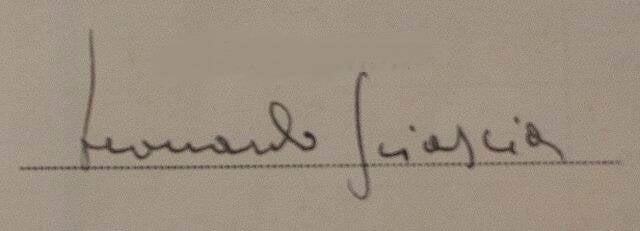 Leonardo Sciascia